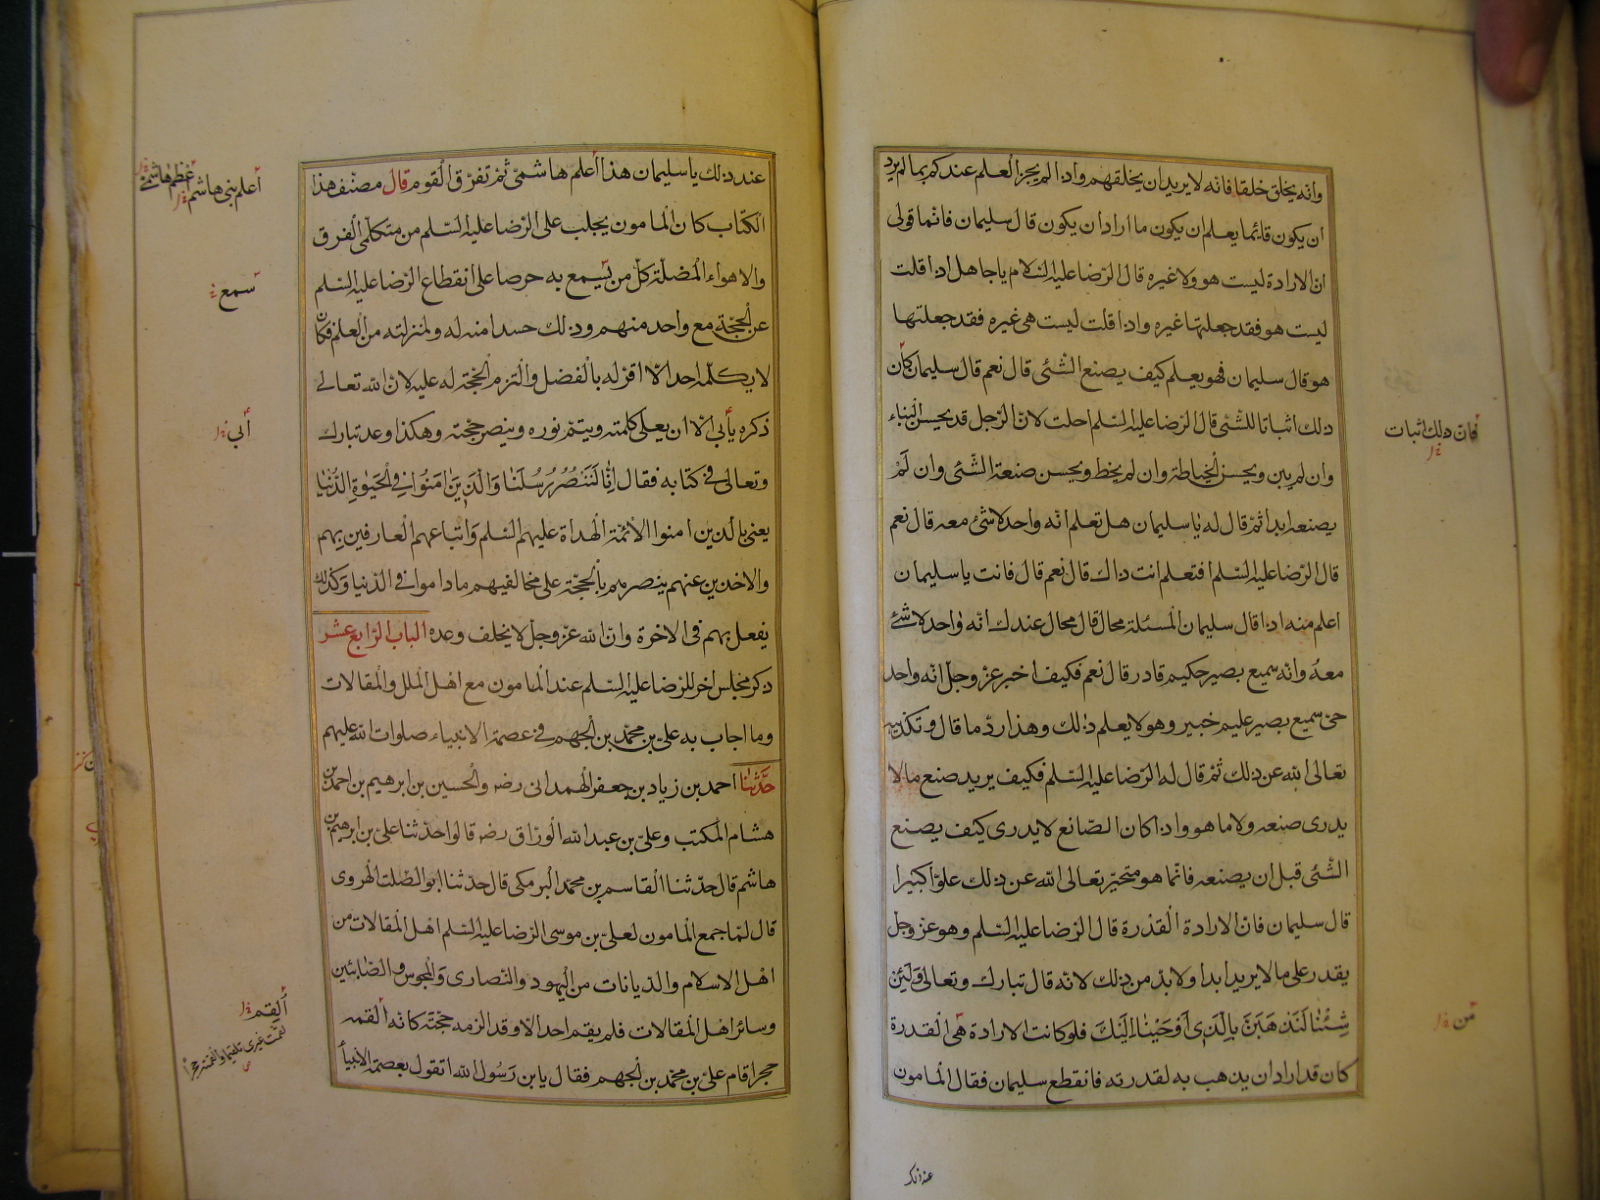 وانّه يخلق خلقا فانه لا يريد ان يخلقهم واذا لم يجز العلم عندكم بما لم يرد
ان يكون فانما يعلم ان يكون ما اراد ان يكون قال سليمان فانما قولى
انّ الارادة ليست هو ولا غيره قال الرّضا عليه السّلام يا جاهل اذا قلت
ليست هو فقد جعلتها غيره واذا قلت ليست هى غيره فقد جعلتها
هو قال سليمان فهو يعلم كيف يصنع الشّئ قال نعم قال سليمان كان
ذلك اثباتا للشّئ قال الرّضا عليه السّلم احلت لانّ الرّجل قد يحسن البناء
وان لم يبن ويحسن الخياطة وان لم يخط ويحسن صنعة الشّئ وان لم
يصنعه ابدا ثمّ قال له يا سليمان هل تعلم انّه واحد لا شئ معه قال نعم
قال الرّضا عليه السّلم افتعلم انت ذاك قال نعم قال فانت يا سليمان
اعلم منه اذا قال سليمان المسئلة محال قال محال عندك انّه واحد لا شئ
معه وانّه سميع بصير حكيم قادر قال نعم فكيف اخبر عزّ وجلّ انّه واحد
حىّ سميع بصير عليم خبير وهو لا يعلم ذلك وهذا ردّ ما قال وتكذيبه
تعالى الله عن ذلك ثمّ قال له الرّضا عليه السّلم فكيف يريد صنع ما لا
يدرى صنعه ولا ما هو واذا كان الصّانع لا يدرى كيف يصنع
الشّئ قبل ان يصنعه فانّما هو متحيّر تعالى الله عن ذلك علوّا كبيرا
قال سليمان فانّ الارادة القدرة قال الرّضا عليه السّلم وهو عزّ وجلّ
يقدر على ما لا يريد ابدا ولا بدّ من ذلك لانّه قال تبارك وتعالى ولئن
شئنا لنذهبنّ بالّذى اوحينا اليك فلو كانت الارادة هى القدرة
كان قد اراد ان يذهب به لقدرته فانقطع سليمان فقال المامون
فان ذلك اثبات
من
عند ذلك
عند ذلك يا سليمان هذا أعلم هاشمىّ ثمّ تفرّق القوم قال مصنّف هذا
الكتاب كان المامون يجلب على الرّضا عليه السّلم من متكلّمى الفرق
والاهواء المضلّة كلّ من يسمع به حرصا على انقطاع الرّضا عليه السّلم
عن الحجّة مع واحد منهم وذلك حسدا منه له ولمنزلته من العلم فكان
لا يكلّمه احد الّا اقرّ له بالفضل والتزم الحجّة له عليه لانّ الله تعالى
ذكره يأبى الّا ان يعلى كلمته ويتمّ نوره وينصر حجّته وهكذا وعد تبارك
وتعالى فى كتابه فقال انّا لننصر رسلنا والّذين امنوا فى الحيوة الدّنيا
يعنى بالّذين امنوا الائمّة الهداة عليهم السّلم واتباعهم العارفين بهم
والاخذين عنهم ينصرهم بالحجّة على مخالفيهم ما داموا فى الدّنيا وكذلك
يفعل بهم فى الاخرة وانّ الله عزّ وجلّ لا يخلف وعده الباب الرّابع عشر
ذكر مجلس اخر للرّضا عليه السّلم عند المامون مع اهل الملل والمقالات
وما اجاب به علىّ بن محمّد بن الجهم فى عصمة الانبياء صلوات الله عليهم
حدّثنا احمد بن زياد بن جعفر الهمدانى رضه والحسين بن ابرهيم بن احمد بن
هشام المكتب وعلىّ بن عبد الله الورّاق رضه قالوا حدّثنا علىّ بن ابرهيم بن
هاشم قال حدّثنا القاسم بن محمّد البرمكى قال حدّثنا ابو الصّلت الهروى
قال لمّا جمع المامون لعلىّ بن موسى الرّضا عليه السّلم اهل المقالات من
اهل الاسلام والدّيانات من اليهود والنّصارى والمجوس والصّابئين
وسائر اهل المقالات فلم يقم احد الّا وقد الزمه حجّته كانّه القمه
حجرا قام علىّ بن محمّد بن الجهم فقال يا بن رسول الله اتقول بعصمة الانبيأ
أعلم بنى هاشم
أعظم هاشمىّ
سمع
أبى
ألقم